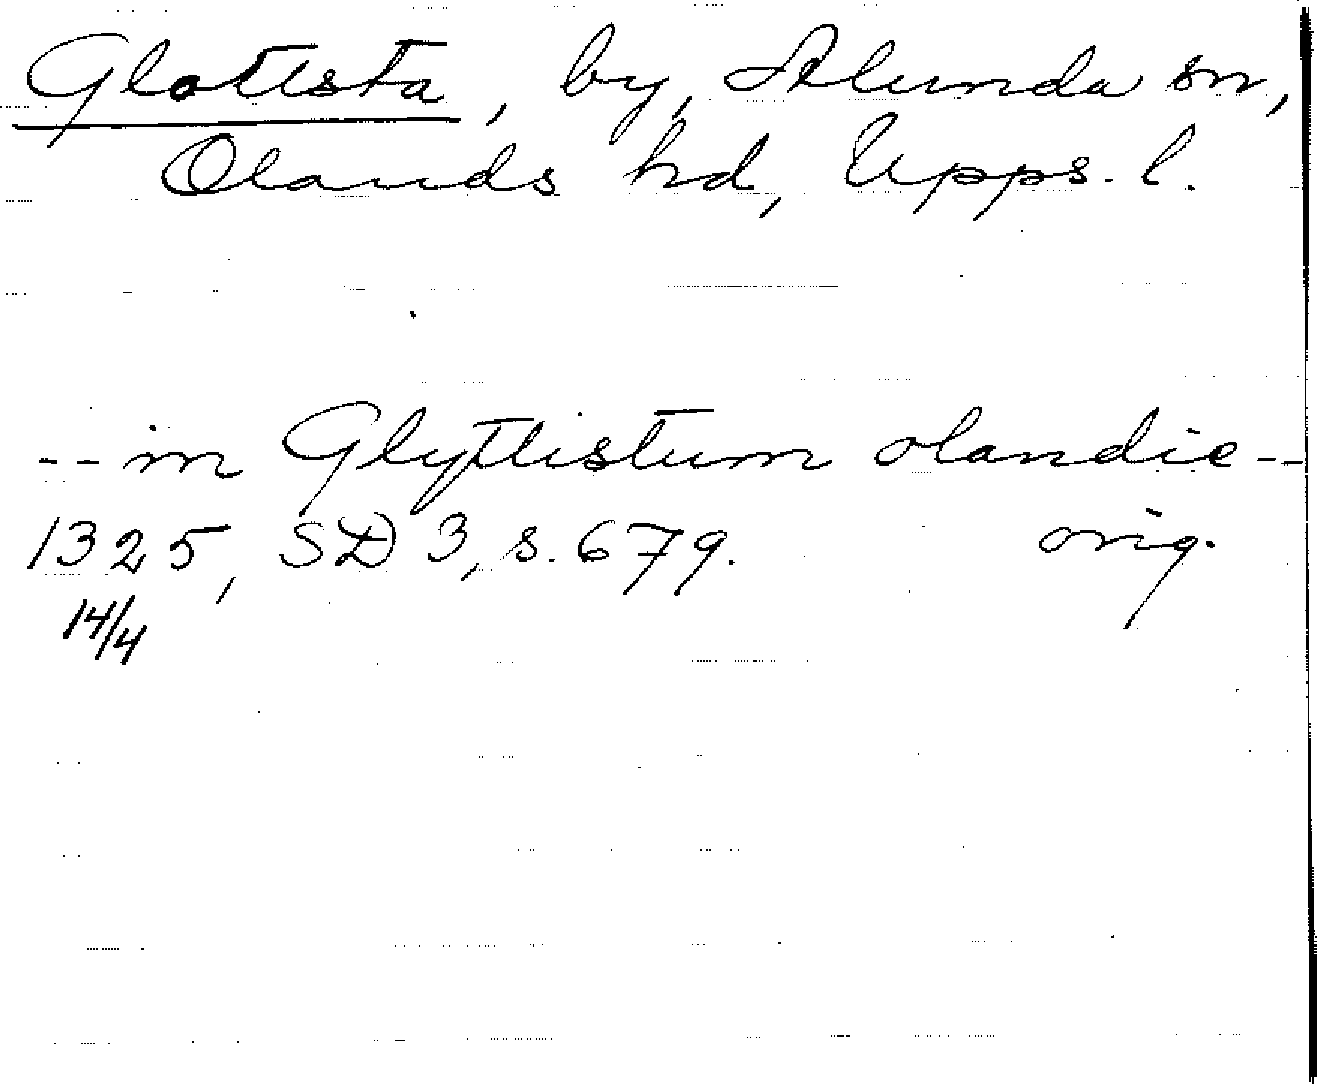 Glotlsta, by, Alunda sn,
Olands hd, Upps. l.
-- in Glytlistum olandie --
1325, SD 3, s. 679. orig.
14/4